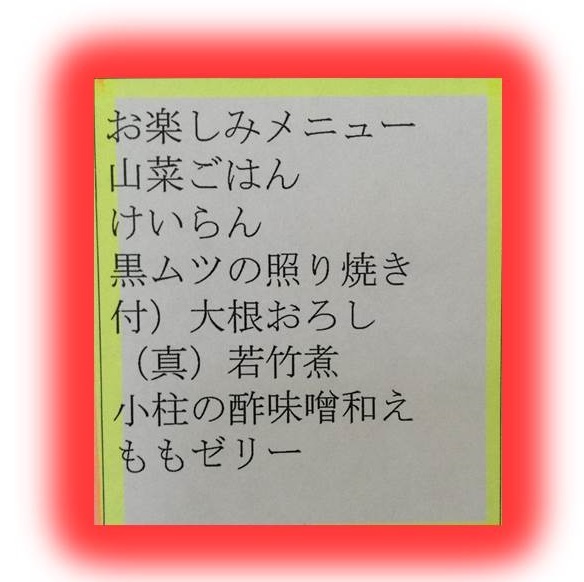 お楽しみメニュー
山菜ごはん
けいらん
黒ムツの照り焼き
付）大根おろし
（真）若竹煮
小柱の酢味噌和え
ももゼリー